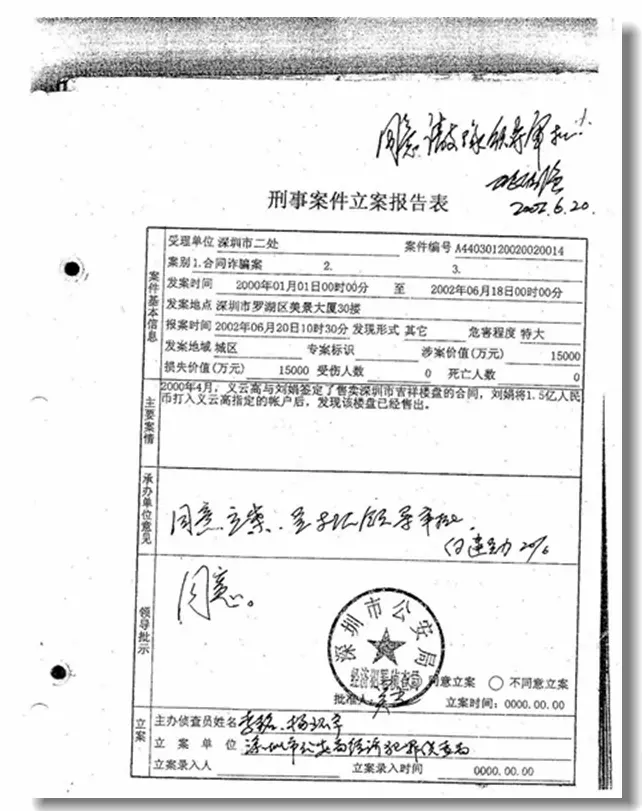 同意
2002.6.20.
刑事案件立案报告表
案件基本信息
受理单位 深圳市二处 案件编号 A44030120020020014
案别1.合同诈骗案 2. 3.
发案时间 2000年01月01日00时00分 至 2002年06月18日00时00分
发案地点 深圳市罗湖区美景大厦30搂
报案时间 2002年06月20日10时30分 发现形式 其它 危害程度 特大
发案地域 城区 专案标识 涉案价值(万元) 15000
损失价值(万元) 15000 受伤人数 0 死亡人数 0
主要案情
2000年4月，义云高与刘娟签定了售卖深圳市吉祥楼盘的合同，刘娟将1.5亿人民
币打入义云高指定的帐户后，发现该楼盘已经售出。
承办单位意见
同意立案.呈 领导审批.
20/6
领导批示
同意。
深圳市公安局
经济犯罪侦查局
同意立案 不同意立案
批准人
立案时间：0000.00.00
立案
主办侦查员姓名
立案单位 深圳市公安局经济犯罪侦查局
立案录入人 立案录入时间 0000.00.00